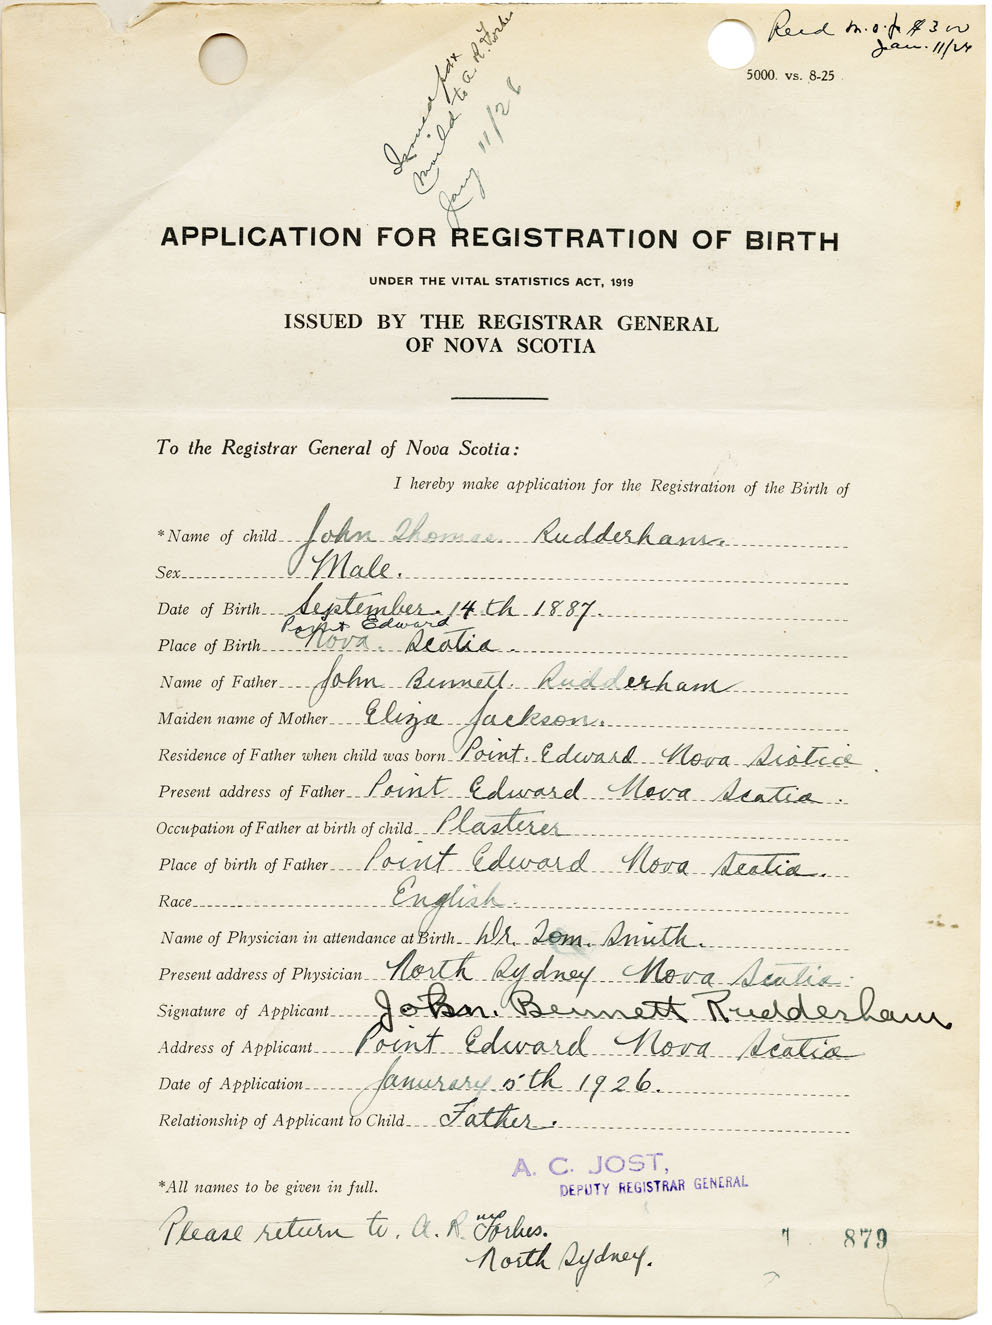 Recd m.o. for $3.00
Jan. 11/26
5000. vs. 8-25
Issued
mailed to A. R. Forbes
Jany 11/26
APPLICATION FOR REGISTRATION OF BIRTH
UNDER THE VITAL STATISTICS ACT, 1919
ISSUED BY THE REGISTRAR GENERAL
OF NOVA SCOTIA
To the Registrar General of Nova Scotia:
I hereby make application for the Registration of the Birth of
*Name of child John Thomas Rudderham.
Sex Male.
Date of Birth September 14th 1887.
Point Edward
Place of Birth Nova Scotia.
Name of Father John Bennett Rudderham
Maiden name of Mother Eliza Jackson.
Residence of Father when child was born Point Edward Nova Scotia.
Present address of Father Point Edward Nova Scotia.
Occupation of Father at birth of child Plasterer
Place of birth of Father Point Edward Nova Scotia.
Race English.
Name of Physician in attendance at Birth Dr. Tom. Smith.
Present address of Physician North Sydney Nova Scotia.
Signature of Applicant John. Bennett Rudderham
Address of Applicant Point Edward Nova Scotia
Date of Application Janurary 5th 1926.
Relationship of Applicant to Child Father.
A. C. JOST,
DEPUTY REGISTRAR GENERAL
*All names to be given in full.
Please return to A. R. Forbes.
North Sydney.
879